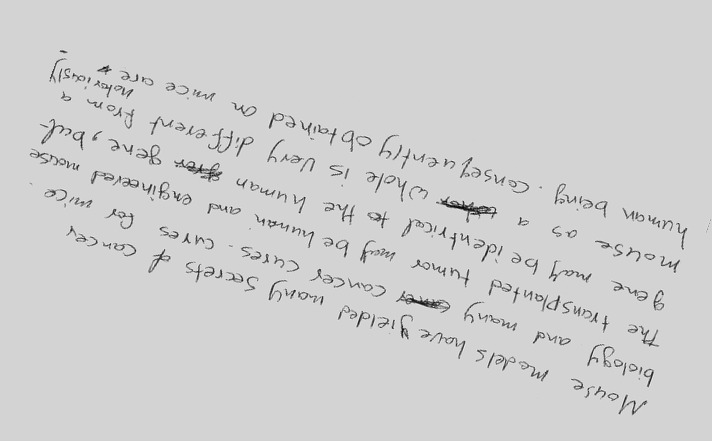 Mouse models have yielded many secrets of cancer
biology and many cancer cures. cures for mice.
The transplanted tumor may be human and engineered mouse
gene may be identical to the human gene, but-
mouse as a whole is very different from a
notoriously
human being. consequently obtained on mice are